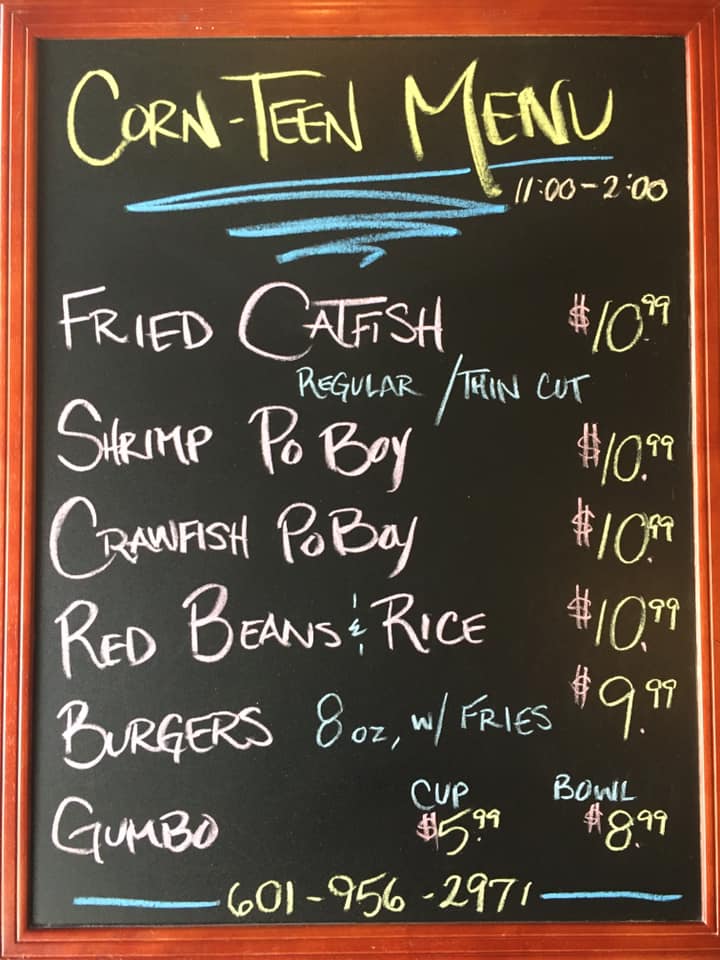 CORN-TEEN MENU
11:00-2:00
FRIED CATFISH $10.99
REGULAR / THIN CUT
SHRIMP PO BOY $10.99
CRAWFISH PO BOY $10.99
RED BEANS & RICE $10.99
BURGERS 8 OZ, W/ FRIES $9.99
CUP BOWL
GUMBO $5.99 $8.99
601-956-2971